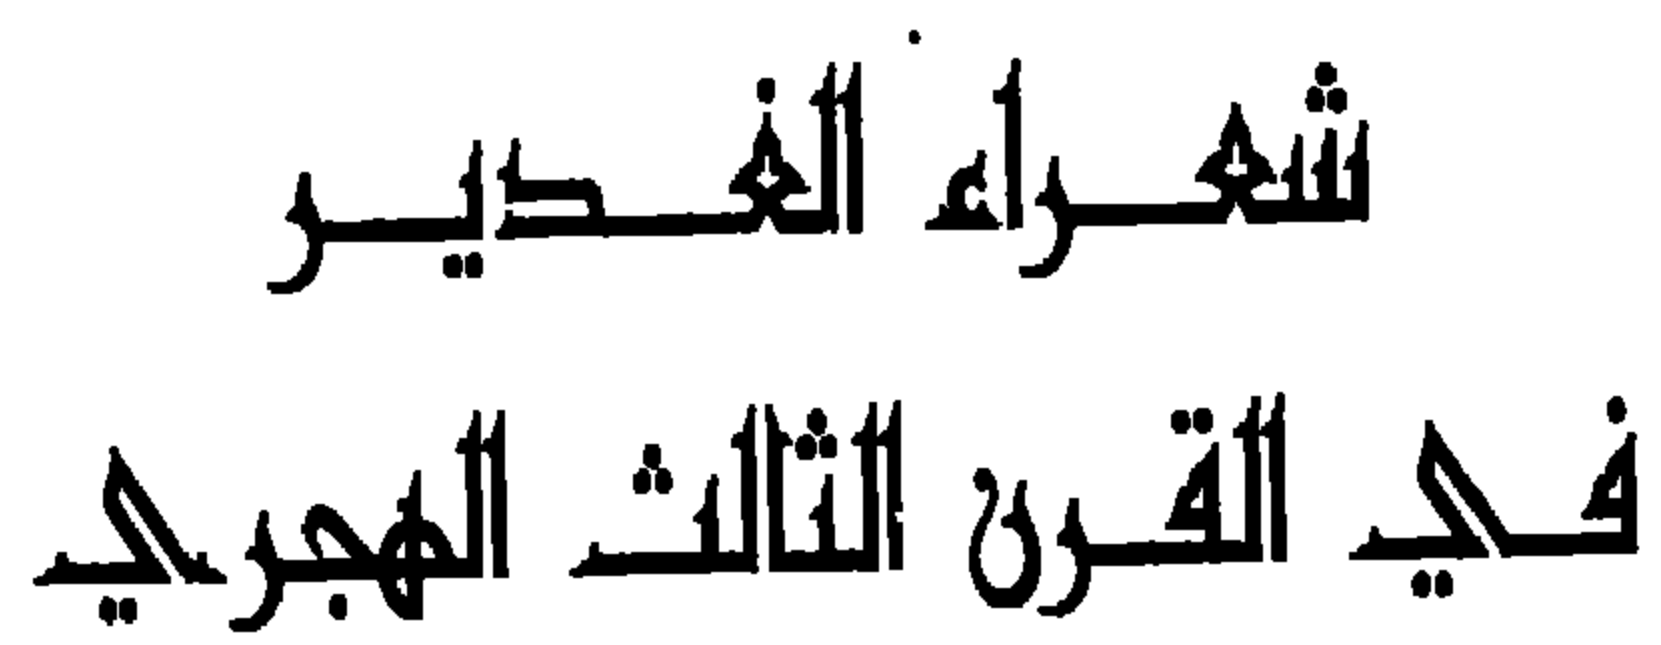 شعراء الغدير
في القرن الثالث الهجري